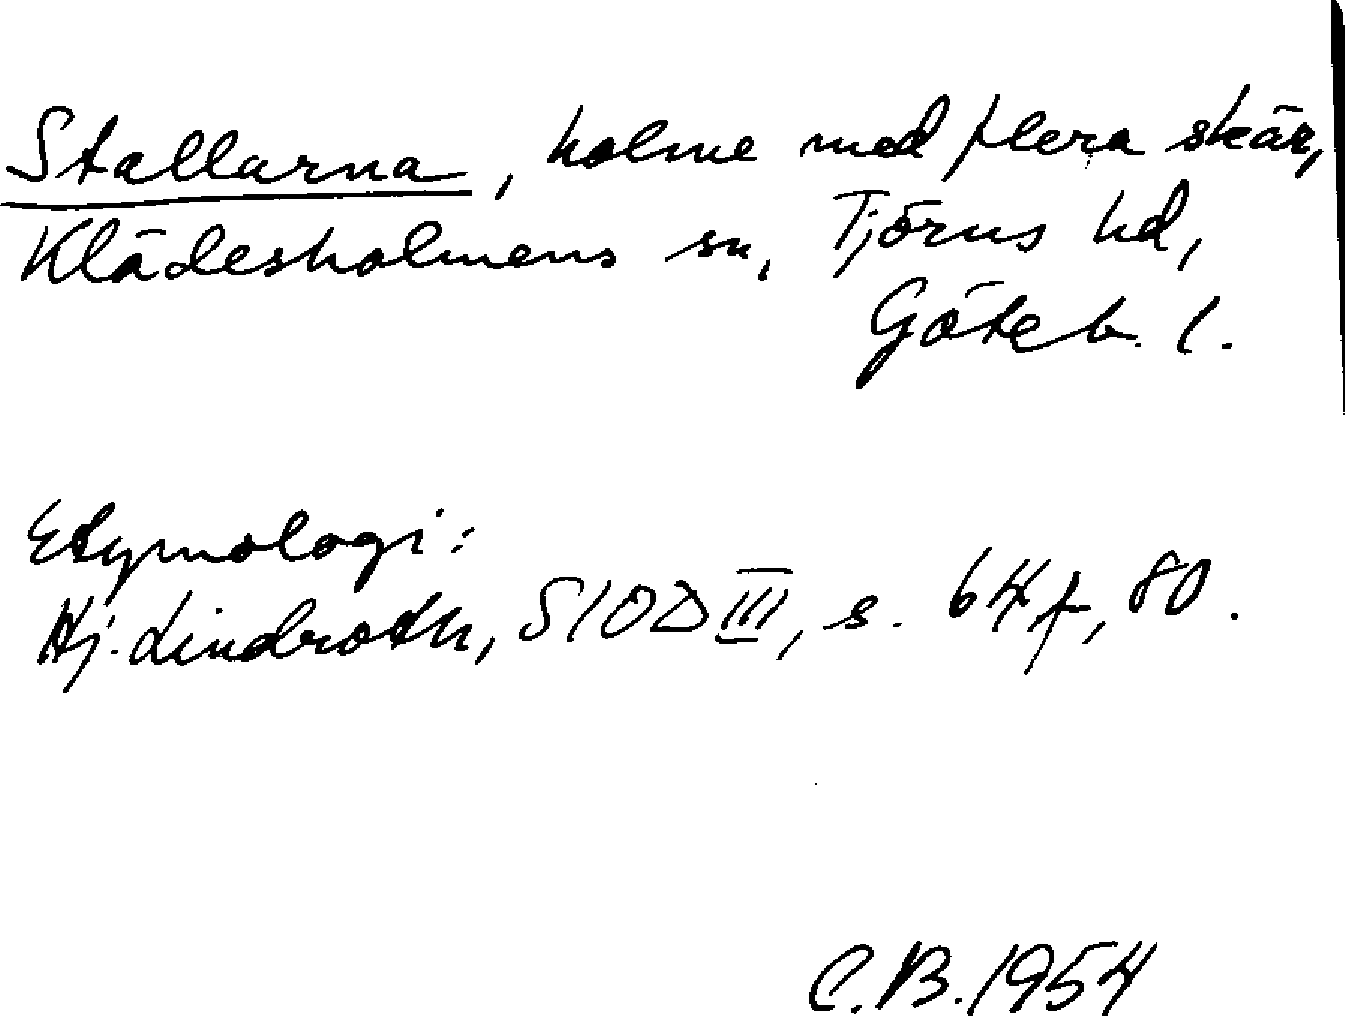 Stallarna, holme med flera skär,
Klädesholmens sn, Tjörns hd,
Göteb. l.
Etymologi:
Hj. Lindroth, SIOD III, s. 64 f, 80.
C.B. 1954